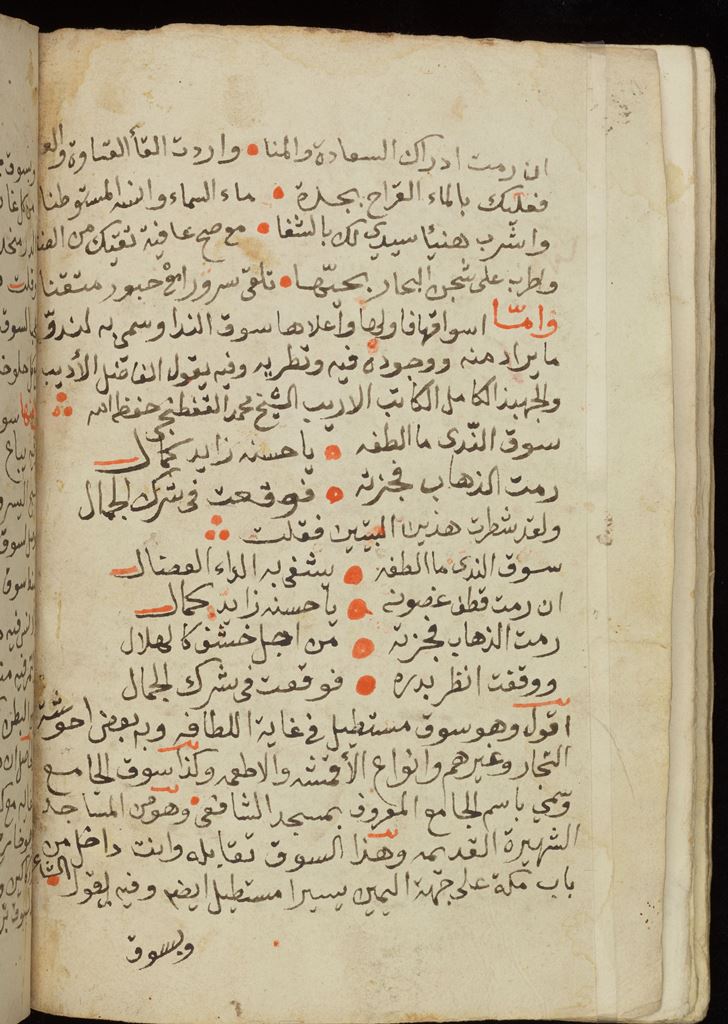 ان رمت ادراك السعادة والمنا • واردت القأ القساوة والعنا
فعليك بالماء القراح بجدة • ماء السماء وانسه المستوطنا
واشرب هنيأ سيدي لك بالشفا • مع صح عافية تقيك من الضنا
واطرب على شجن البحار بحيّها • تلقى سرورا مع حبور متقنا
وامّا اسواقها فاولها وأعلاها سوق الندا وسمي به لندوّ
ما يراد منه ووجوده فيه وتطريه وفيه يقول الفاضل الأديب
والجهبذ الكامل الكاتب الاريب الشيخ محمد القفطنجي حفظه الله
سوق النّدى ما الطفه • يا حسنه زايد كمال
رمت الذهاب فجزته • فوقعت في شرك الجمال
ولقد شطرت هذين البيتين فقلت
سوق الندى ما الطفه • يشفى به الداء العضال
ان رمت قطف غصونه • يا حسنه زايد كمال
رمت الذهاب فجزته • من اجل خشف كالهلال
ووقفت انظر بدره • فوقعت في شرك الجمال
اقول وهو سوق مستطيل في غاية اللطافه وبه بعض احوشة
التجار وغيرهم وانواع الأقمشه والاطعمه وكذا سوق الجامع
وسمي باسم الجامع المعروف بمسجد الشافعي وهو من المساجد
الشهيرة القديمه وهذا السوق تقابله وانت داخل من
باب مكة على جهة اليمين يسيرا مستطيل ايضا وفيه يقول الشاعر
وبسوق